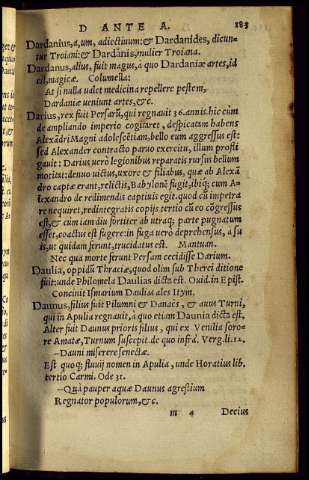 D ANTE A. 183
Dardanius,a,um, adiectiuum:& Dardanides, dicun-
tur Troiani:& Dardanis, mulier Troiana.
Dardanus, alius, fuit magus, à quo Dardaniæ artes, id
est, magicæ. Columella:
At si nulla ualet medicina repellere pestem,
Dardaniæ ueniunt artes,&c.
Darius, rex fuit Persarũ, qui regnauit 36. annis. hic cùm
de ampliando imperio cogitaret, despicatum habens
Alexãdri Magni adolescẽtiam, bello eum aggressus est:
sed Alexander contracto paruo exercitu, illum profli
gauit: Darius uerò legionibus reparatis rursus bellum
mouit: denuo uictus, uxore & filiabus, quæ ab Alexã
dro captæ erant, relictis, Babylonẽ fugit, ibiq; cum A-
lexandro de redimendis captiuis egit. quod cũ impetra
re nequiret, redintegratis copijs tertio cũ eo cõgressus
est, & cùm iam diu fortiter ab utraq; parte pugnatum
esset, coactus est fugere: in fuga verò deprehensus, à su
is, ut quidam ferunt, trucidatus est. Mantuan.
Nec qua morte ferunt Persam cecidisse Darium.
Daulia, oppidũ Thraciæ, quod olim sub Therei ditione
fuit: unde Philomela Daulias dicta est. Ouid. in Epist.
Concinit Ismarium Daulias ales Ityn.
Daunus, filius fuit Pilumni & Danaës, & auus Turni,
qui in Apulia regnauit, à quo etiam Daunia dicta est.
Alter fuit Daunus prioris filius, qui ex Venilia soro-
re Amatæ, Turnum suscepit. de quo infrà. Verg.li.12.
–Dauni miserere senectæ.
Est quoq; fluuij nomen in Apulia, unde Horatius lib.
tertio Carmi. Ode 31.
–Quà pauper aquæ Daunus agrestium
Regnator populorum, &c.
m 4 Decius